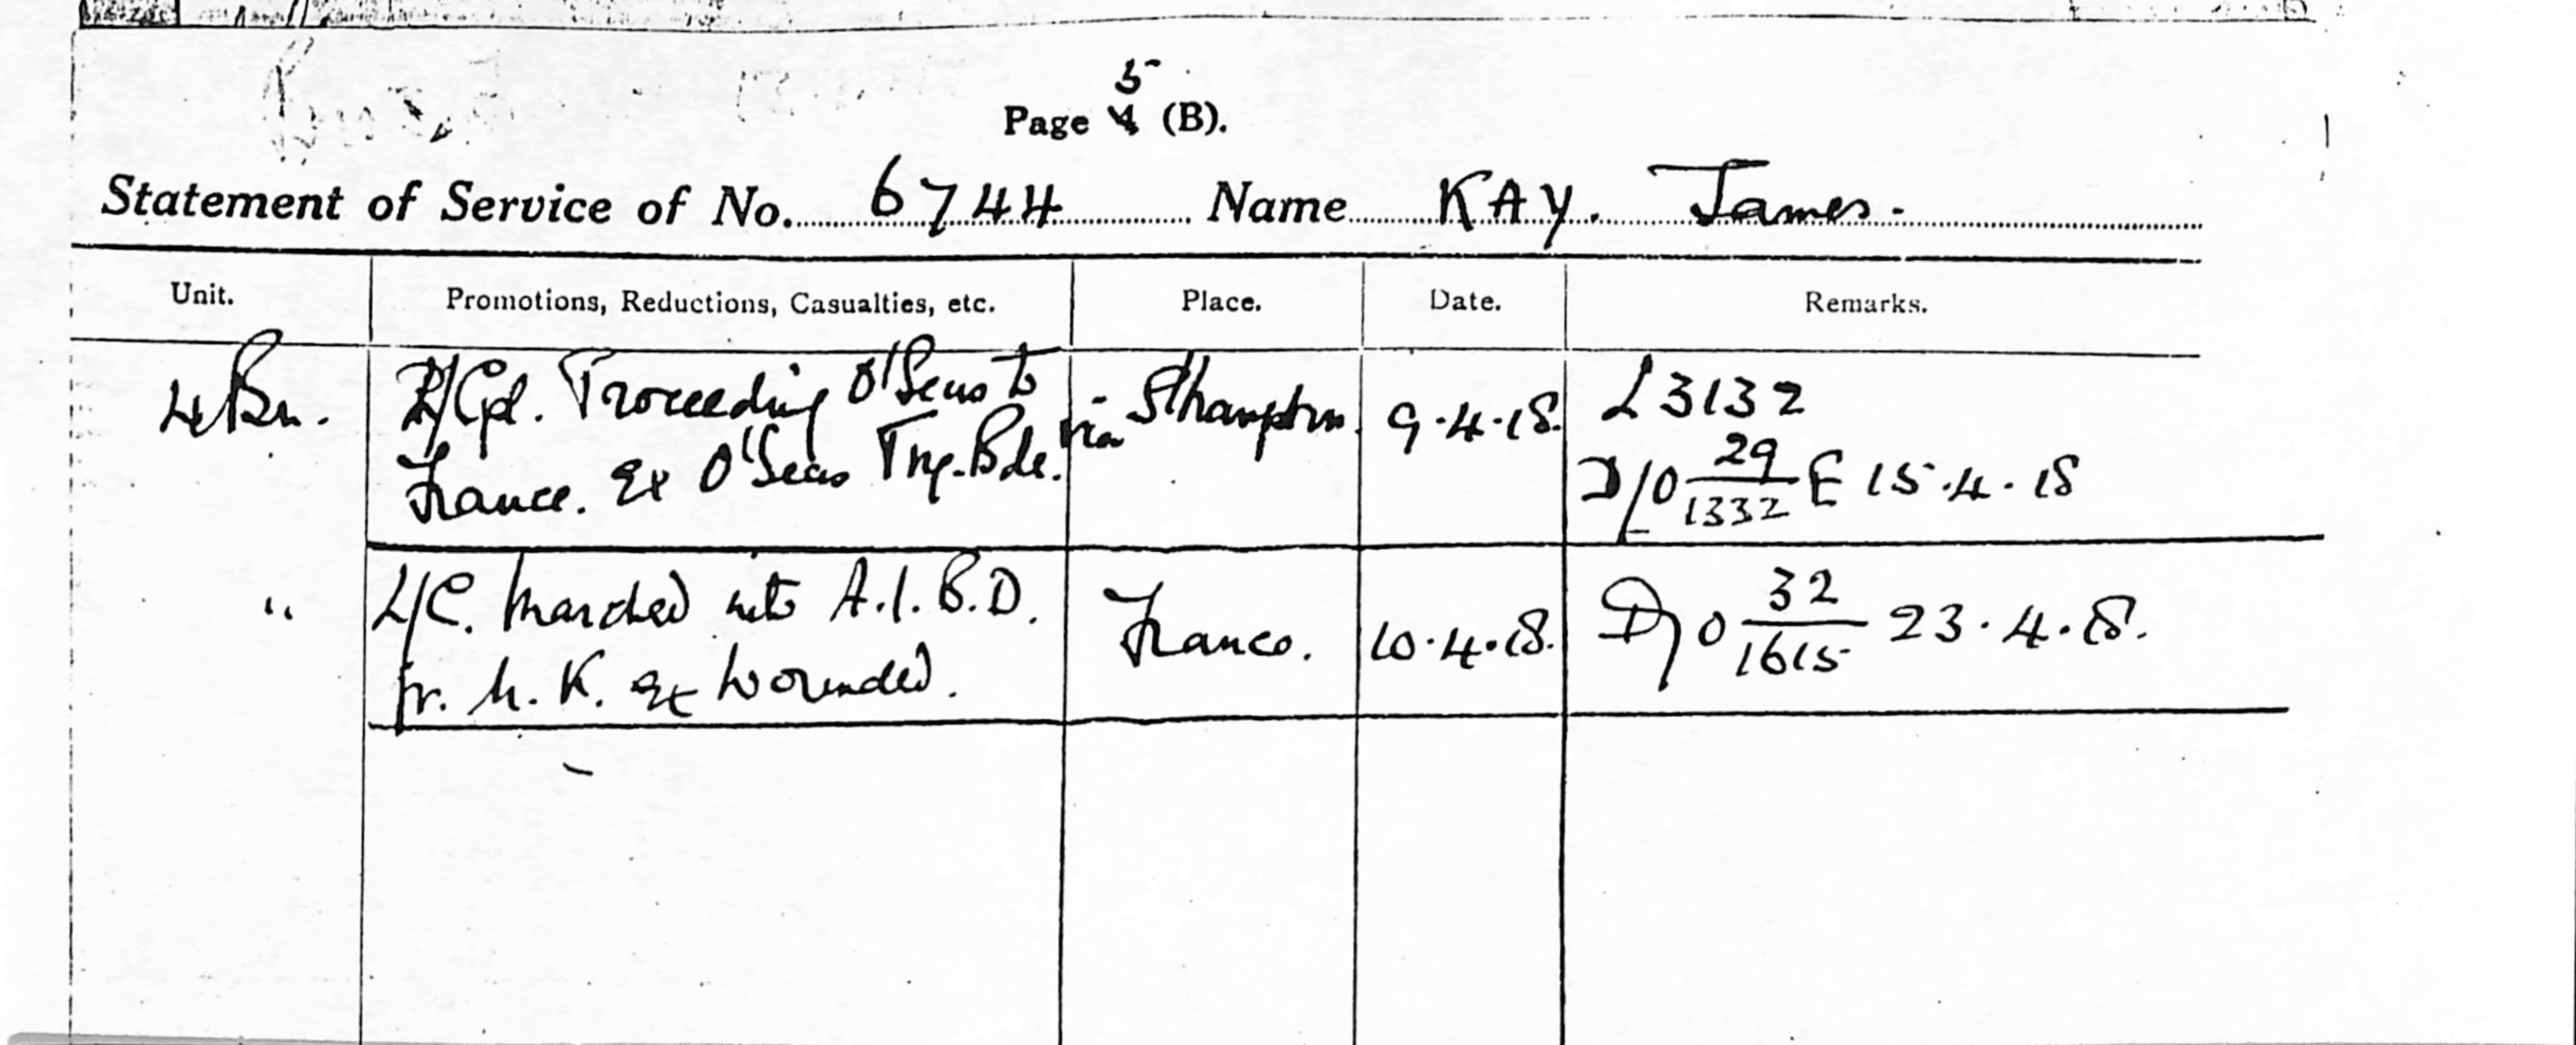 5
Page 4 (B).
Statement of Service of No. 6744 Name KAY. James.
Unit. Promotions, Reductions, Casualties, etc. Place. Date. Remarks.
4 Bn. L/Cpl. Proceeding O'Seas to via S'hampton. 9.4.18. L3132
France. Ex O'Seas Trg. Bde. D/O 29/1332 E 15.4.18
" L/C. Marched into A.I.B.D. France. 10.4.18. D/O 32/1615 23.4.18.
fr. U.K. ex wounded.